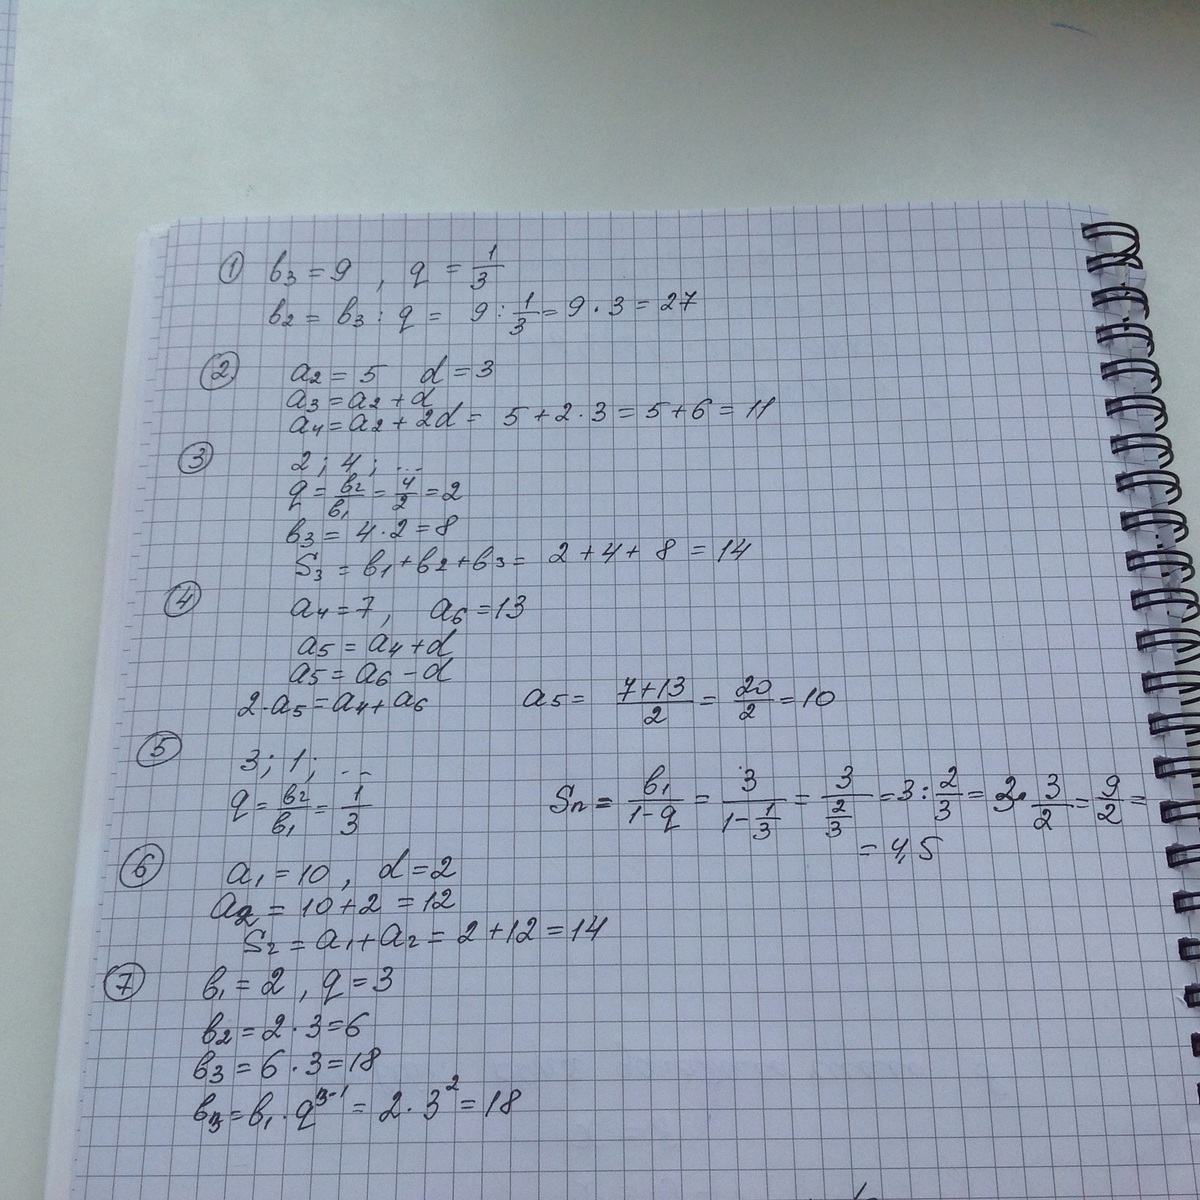 ① b₃ = 9 , q = 1/3
b₂ = b₃ : q = 9 : 1/3 = 9 · 3 = 27
② a₂ = 5 d = 3
a₃ = a₂ + d
a₄ = a₂ + 2d = 5 + 2 · 3 = 5 + 6 = 11
③ 2 ; 4 ; ...
q = b₂/b₁ = 4/2 = 2
b₃ = 4 · 2 = 8
S₃ = b₁ + b₂ + b₃ = 2 + 4 + 8 = 14
④ a₄ = 7 , a₆ = 13
a₅ = a₄ + d
a₅ = a₆ - d
2 · a₅ = a₄ + a₆ a₅ = (7+13)/2 = 20/2 = 10
⑤ 3 ; 1 ; ...
q = b₂/b₁ = 1/3 Sₙ = b₁/(1-q) = 3/(1-1/3) = 3/(2/3) = 3 : 2/3 = 3 · 3/2 = 9/2 =
= 4,5
⑥ a₁ = 10 , d = 2
a₂ = 10 + 2 = 12
S₂ = a₁ + a₂ = 2 + 12 = 14
⑦ b₁ = 2 , q = 3
b₂ = 2 · 3 = 6
b₃ = 6 · 3 = 18
b₃ = b₁ · q³⁻¹ = 2 · 3² = 18